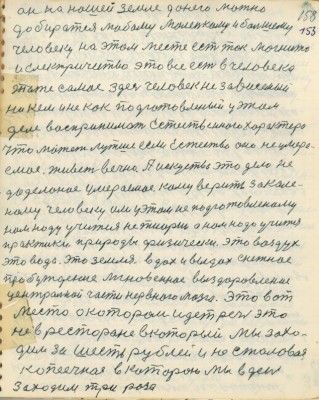 он на нашей земле до него можно 158
добиратся любому маленкому и большому 153
человеку на этом месте ест ток магнито
и електричество это все ест в человека
этоже самае. Здес человек не зависимый
на кем и не как подготовленый у этом
деле воспринимат естественного характера
что может лутше если Естество оно не умира-
емае. живет вечно. А искуство это дело не
доделоное умераемае кому верить закале-
ному человеку или у этом не подготовленому
ном надо учится не тиории а ном надо учится
практики природы физически. Это воздух
это вода. Это земля. вдох и выдах снежное
пробуждение мгновенное выздоровление
центральной части нервного мозга. Это вот
место о котором идет реч это
не в ресторане в который мы захо-
дим за шесть рублей и не столовая
копеечная в которою мы в ден
заходим три раза